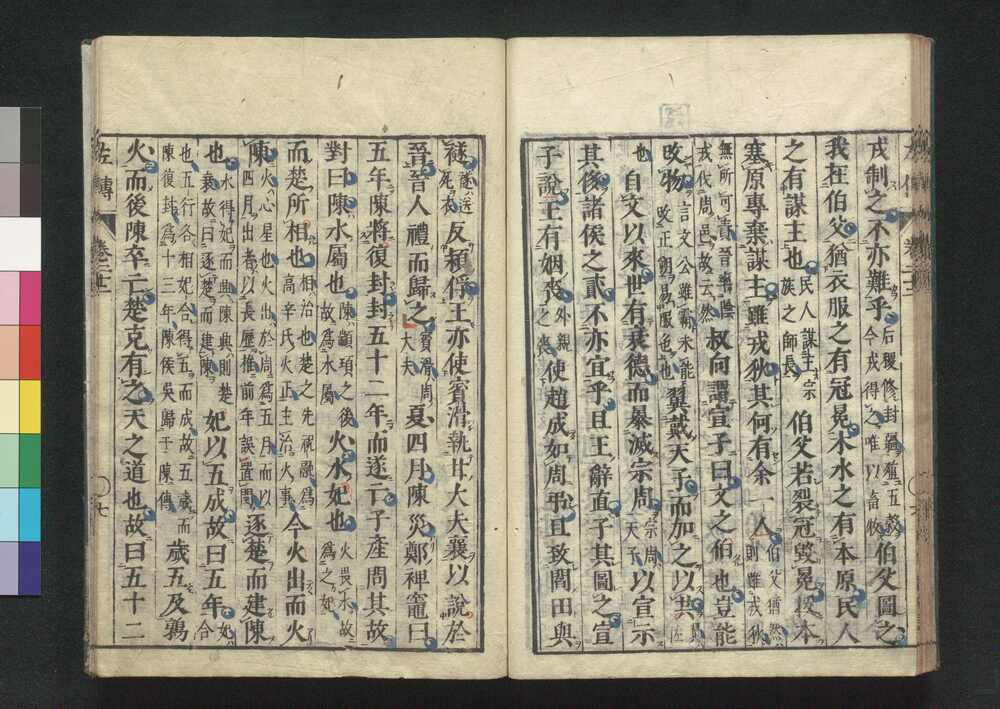 戎制之不亦難乎后稷修封疆殖五穀今戎得之唯以畜牧伯父圖之
我在伯父猶衣服之有冠冕木水之有本原民人
之有謀主也民人謀主宗族之師長伯父若裂冠毀冕拔本
塞原專棄謀主雖戎狄其何有余一人伯父猶然則雖戎狄
無所可責晉率陰戎伐周邑故云然叔向謂宣子曰文之伯也豈能
改物言文公雖霸未能改正朔易服色也翼戴天子而加之以共
也自文以來世有衰德而暴滅宗周宗周天子以宣示
其侈諸侯之貳不亦宜乎且王辭直子其圖之宣
子說王有姻喪外親之喪使趙成如周弔且致閻田與
襚襚送死衣反潁俘王亦使賓滑執甘大夫襄以說於
晉晉人禮而歸之賓滑周大夫夏四月陳災鄭裨竈曰
五年陳將復封封五十二年而遂亡子產問其故
對曰陳水屬也陳顓頊之後故為水屬火水妃也火畏水故為之妃
而楚所相也相治也楚之先祝融為高辛氏火正主治火事今火出而火
陳火心星也火出於周為五月而以四月出者以長曆推前年誤置閏逐楚而建陳
也水得妃而興陳興則楚衰故曰逐楚而建陳妃以五成故曰五年妃合
也五行各相妃合得五而成故五歲而陳復封為十三年陳侯吳歸于陳傳歲五及鶉
火而後陳卒亡楚克有之天之道也故曰五十二
左傳
卷二十二
七